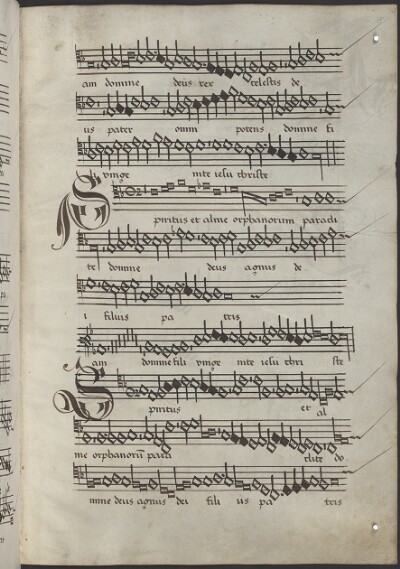 am domine deus rex celestis de
us pater omni potens domine fi
li vnige nite iesu christe
Spiritus et alme orphanorum paradi
te domine deus agnus de
i filius pa tris
am domine fili vnige nite iesu chri ste
Spiritus et al
me orphanorū para clite do
mine deus agnus dei fili us pa tris